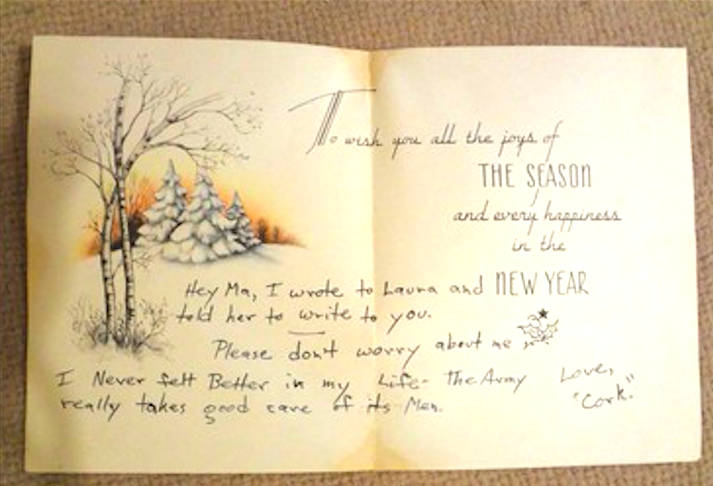 To wish you all the joys of
THE SEASON
and every happiness
in the
NEW YEAR
Hey Ma, I wrote to Laura and
told her to write to you.
Please don't worry about me
I Never felt Better in my Life- The Army
really takes good care of its Men.
Love,
"Cork."